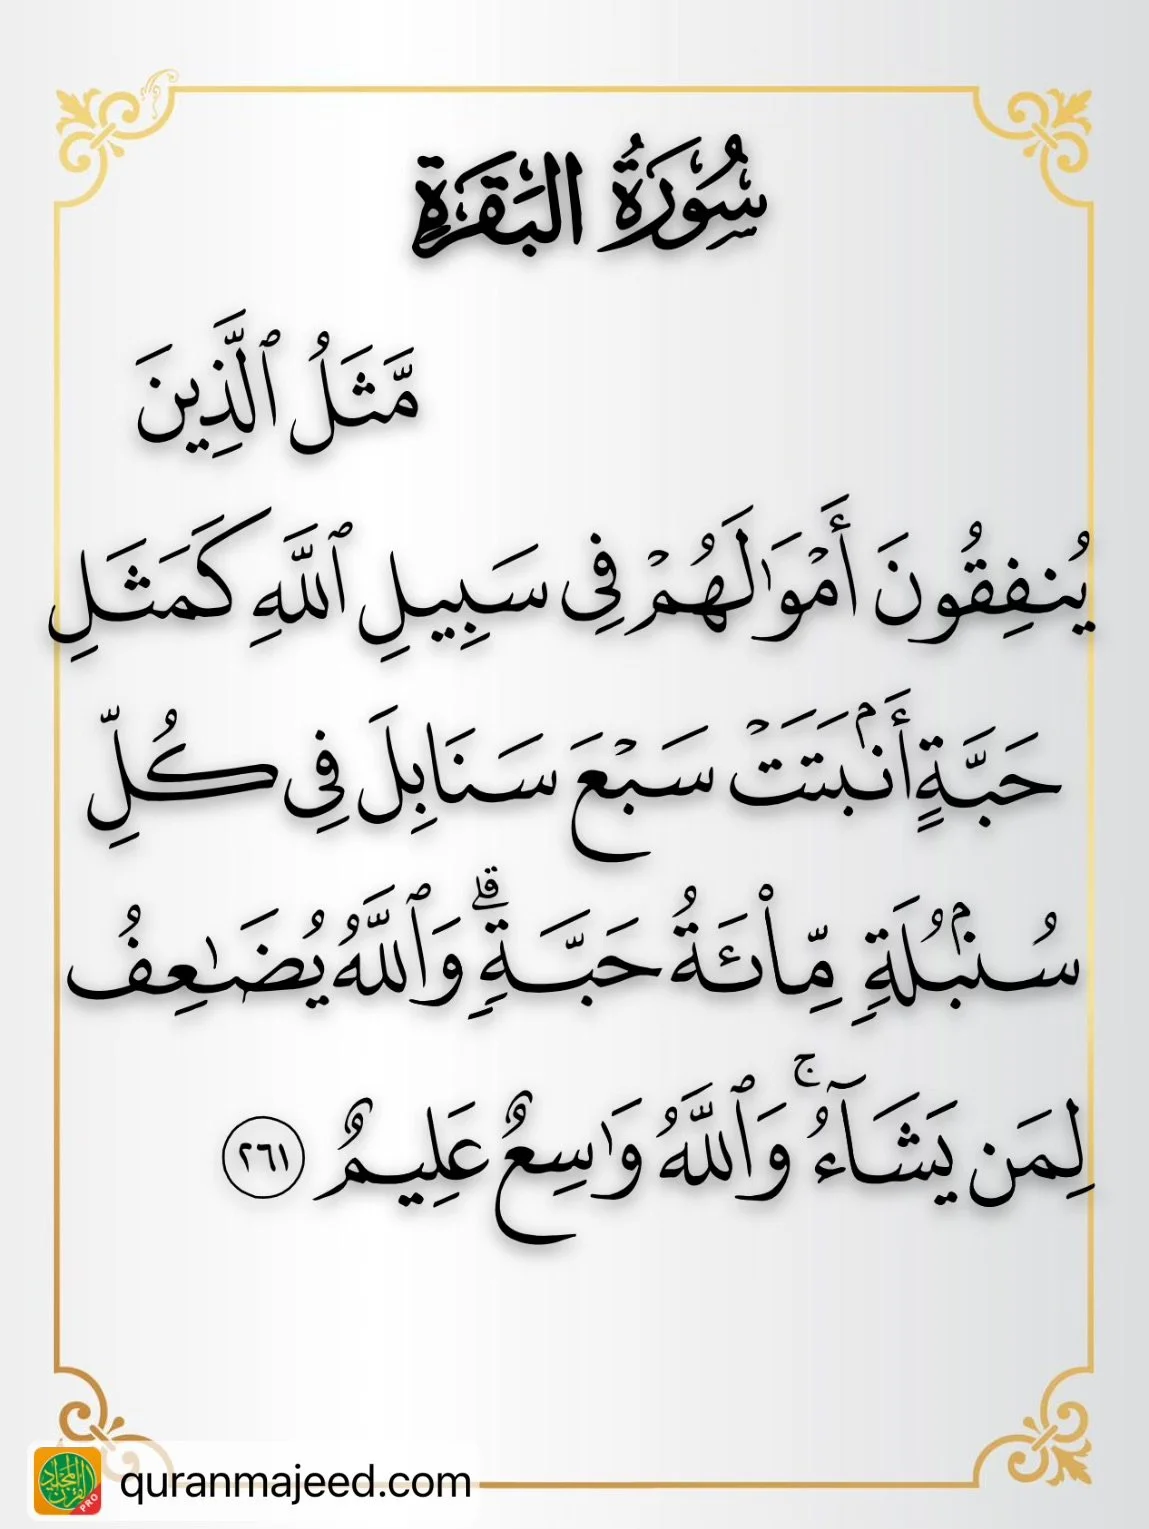 سُورَةُ البَقَرَةِ
مَّثَلُ ٱلَّذِينَ
يُنفِقُونَ أَمْوَٰلَهُمْ فِى سَبِيلِ ٱللَّهِ كَمَثَلِ
حَبَّةٍ أَنۢبَتَتْ سَبْعَ سَنَابِلَ فِى كُلِّ
سُنۢبُلَةٍ مِّا۟ئَةُ حَبَّةٍ ۗ وَٱللَّهُ يُضَـٰعِفُ
لِمَن يَشَآءُ ۚ وَٱللَّهُ وَٰسِعٌ عَلِيمٌ ٢٦١
quranmajeed.com
PRO